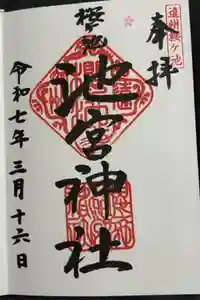 奉拝
遠州桜ヶ池
櫻ヶ池
池宮神社
令和七年三月十六日